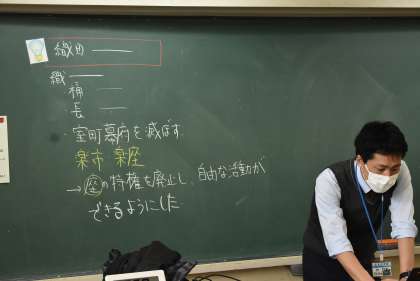 織田 ――
織 ――
桶 ――
長 ――
・室町幕府を滅ぼす
楽市 楽座
→座の特権を廃止し、自由な活動が
できるようにした